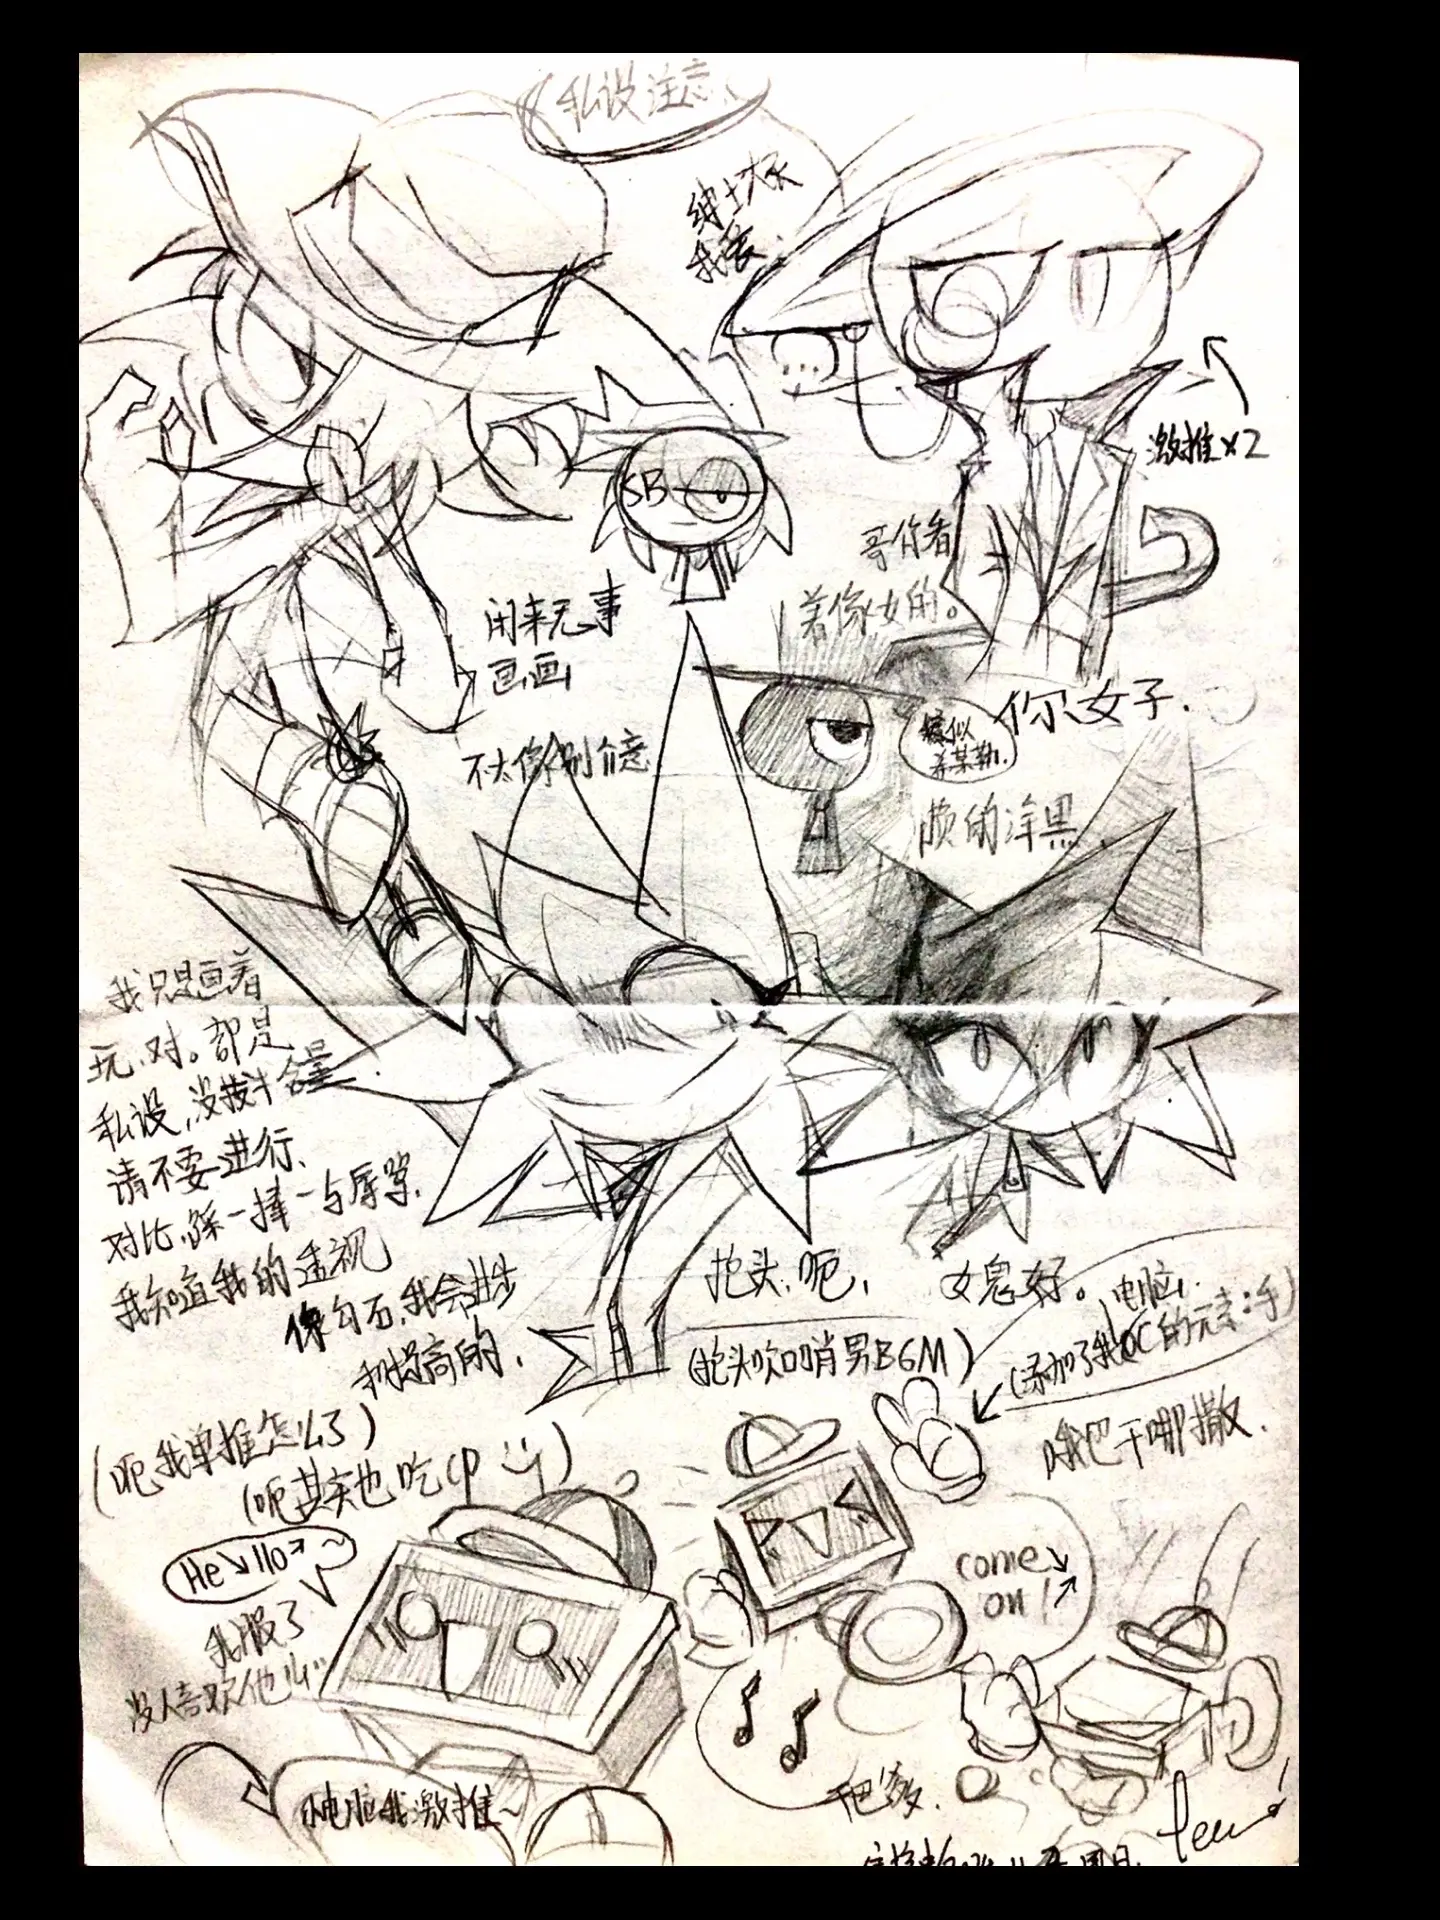 私设注意
绅士大衣
我爱.
激推×2
SB
哥你看
着像女的。
闲来无事
画画
你女子.
疑似
希某勒.
不太像别介意
颜的洋黑
我只是画着
玩.对。都是
私设,没技术含量.
请不要进行、
对比,踩一捧一与辱骂.
我知道我的透视
像勾石,我会进步
和提高的.
抢头.呃,
女鬼好。
电脑,
(抢头吹口哨男BGM)
(添加了我OC的元素:手)
(呃我单推怎么了)
(呃其实也吃cp
哦巴干哪撒.
He↘llo↗~
我服了
没人喜欢他吗
come↘
on!↗
小电脑我激推~